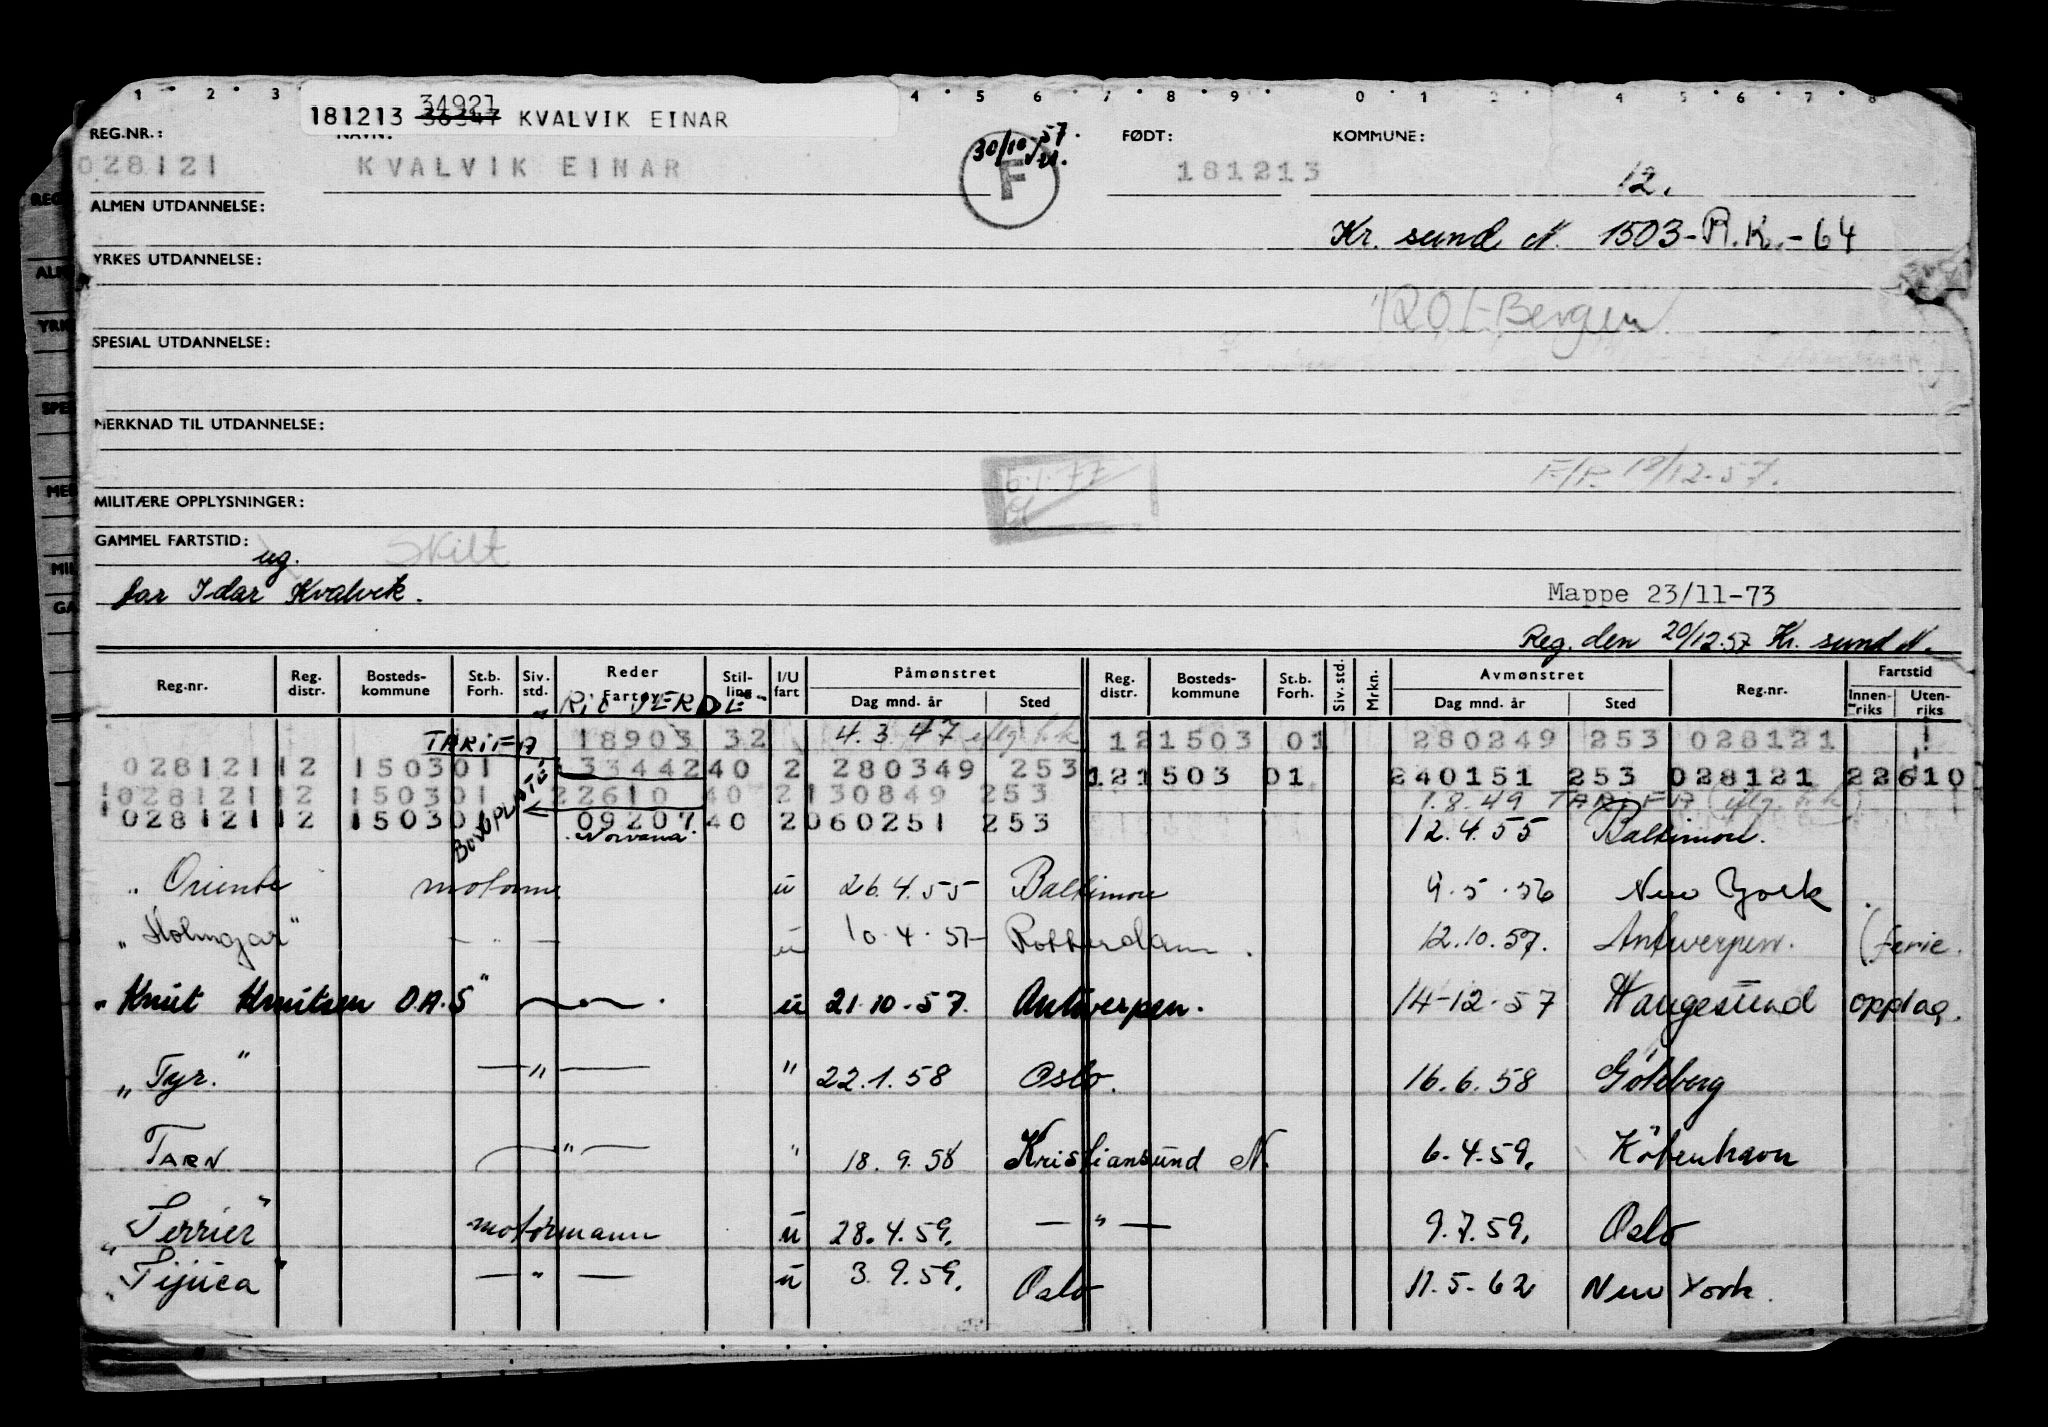 1 · 2 · 3 4 · 5 · 6 · 7 · 8 · 9 · 0 · 1 · 2 · 4 · 5 · 6 · 7 · 8
34921
181213 36347 KVALVIK EINAR
REG.NR.: NAVN: 30/10 57. FØDT: KOMMUNE:
028121 KVALVIK EINAR F 181213 12.
ALMEN UTDANNELSE: Kr. sund N. 1503-R.K.-64
YRKES UTDANNELSE:
1201-Bergen
SPESIAL UTDANNELSE:
MERKNAD TIL UTDANNELSE:
6.1.77 F/R 19/12-57.
MILITÆRE OPPLYSNINGER:
GAMMEL FARTSTID: Skilt
ug.
far Idar Kvalvik. Mappe 23/11-73
Reg. den 20/12.57 Kr. sund N.
Reg.nr. Reg. distr. Bosteds-kommune St.b. Forh. Siv. std. Reder Fartøy Stil-ling I/U fart Påmønstret Dag mnd. år Sted Reg. distr. Bosteds-kommune St.b. Forh. Siv. std. Mrkn. Avmønstret Dag mnd. år Sted Reg.nr. Fartstid Innen-riks Uten-riks
RIO VERDE
TARIFA 18903 32 4.3.47 iflg. h.k 12 1503 01 280249 253 028121
028121 12 1503 01 33442 40 2 280349 253 12 1503 01 240151 253 028121 22610
028121 12 1503 01 22610 40 2 130849 253 1.8.49 TARIFA (iflg. h.k)
028121 12 1503 0 09207 40 2 060251 253 12.4.55 Baltimore.
"Norvana"
" Oriente motorm. u 26.4.55 Baltimore 9.5.56 New York
"Holmgar" — " — u 10.4.57 Rotterdam. 12.10.57. Antwerpen. (ferie.
"Knut Knutsen O.A.S" u 21.10.57. Antwerpen. 14-12-57 Haugesund oppdag.
"Tyr." — " — " 22.1.58 Oslo. 16.6.58 Göteborg
TARN — " — " 18.9.58 Kristiansund N. 6.4.59. Köbenhavn
"Terrier" motormann u 28.4.59. — " — 9.7.59. Oslo
"Tijuca" — " — u 3.9.59. Oslo 11.5.62 New York.